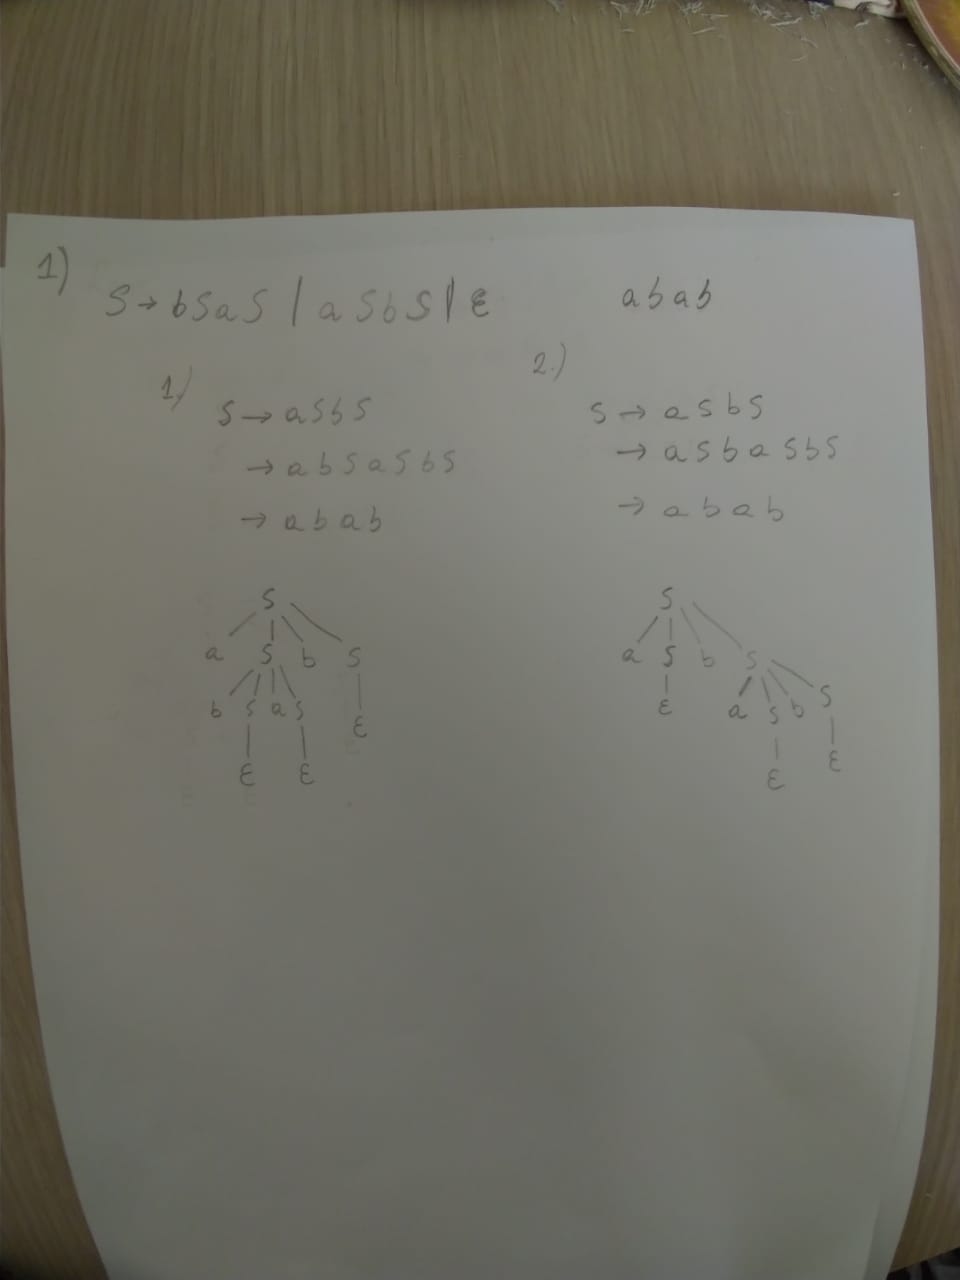 1)
S → bSaS | aSbS | ε
abab
1.)
S → aSbS
→ abSaSbS
→ abab
S
a S b S
b S a S ε
ε ε
2.)
S → aSbS
→ aSbaSbS
→ abab
S
a S b S
ε a S b S
ε ε